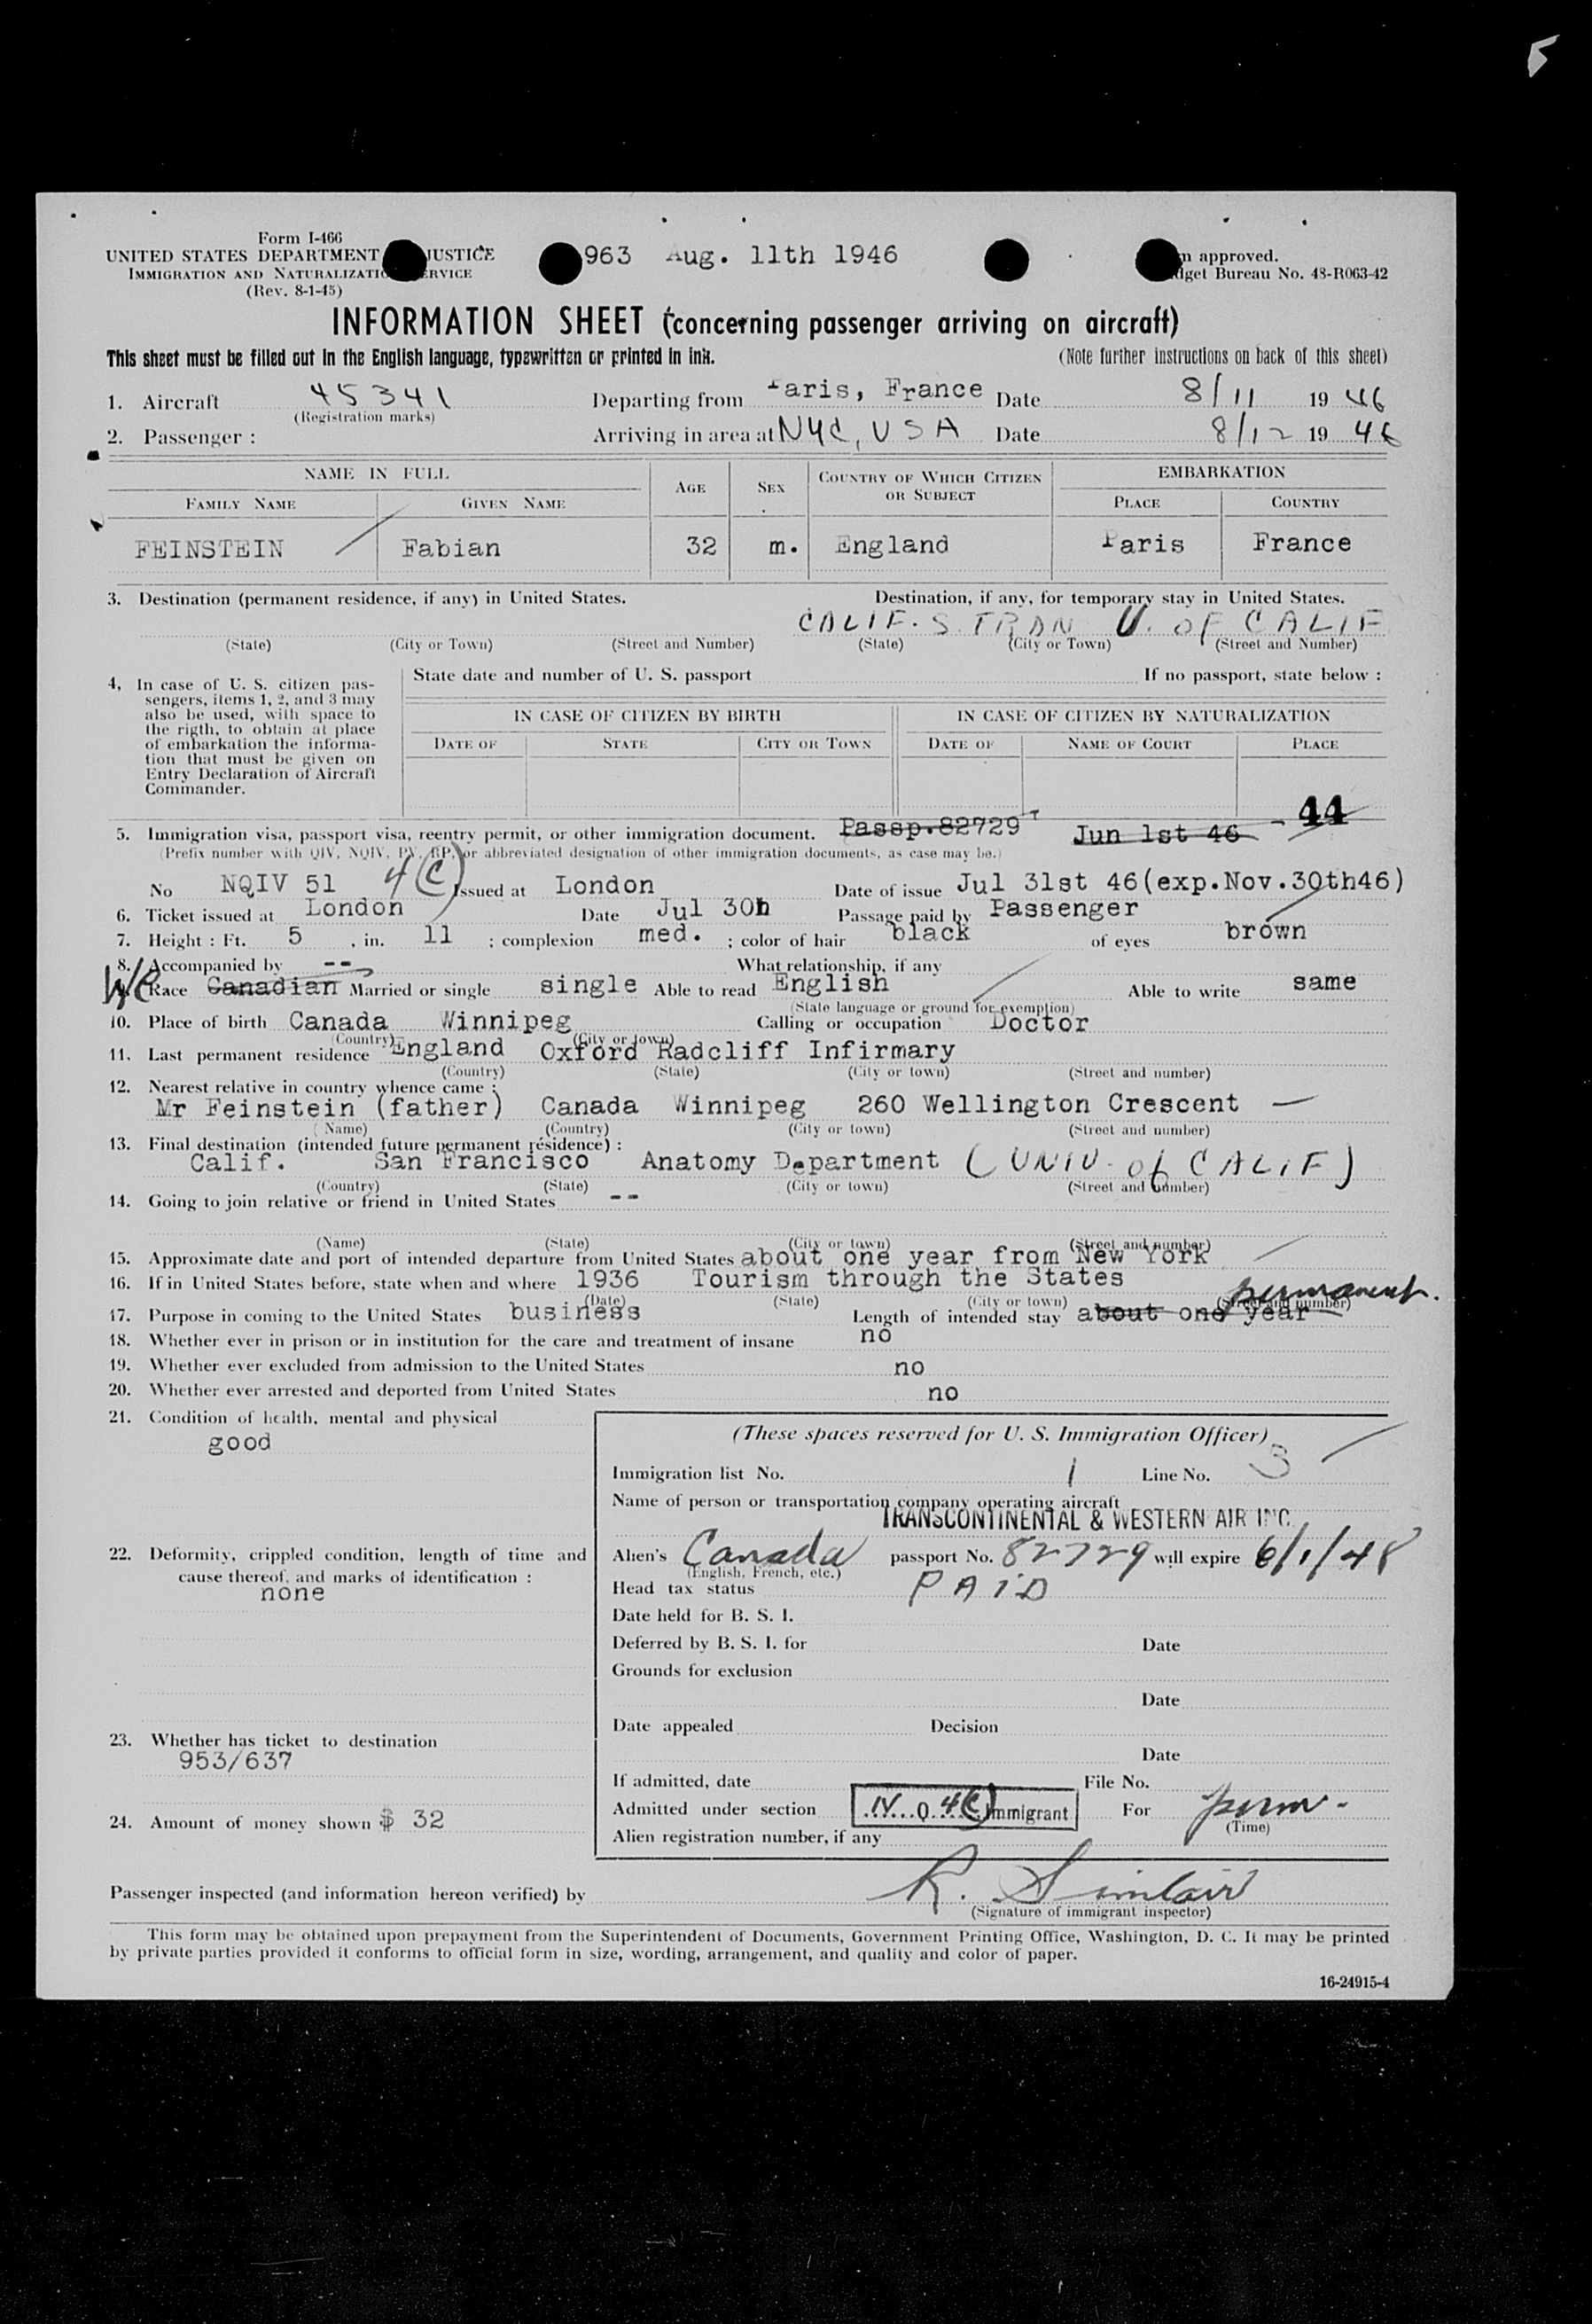 Form I-466
UNITED STATES DEPARTMENT JUSTICE 963 Aug. 11th 1946 approved.
IMMIGRATION AND NATURALIZATIO ERVICE dget Bureau No. 43-R063-42
(Rev. 8-1-45)
INFORMATION SHEET (concerning passenger arriving on aircraft)
This sheet must be filled out in the English language, typewritten or printed in ink. (Note further instructions on back of this sheet)
1. Aircraft 45341 Departing from Paris, France Date 8/11 1946
(Registration marks)
2. Passenger : Arriving in area at NYC, USA Date 8/12 1946
NAME IN FULL AGE SEX COUNTRY OF WHICH CITIZEN OR SUBJECT EMBARKATION
FAMILY NAME GIVEN NAME PLACE COUNTRY
FEINSTEIN Fabian 32 m. England Paris France
3. Destination (permanent residence, if any) in United States. Destination, if any, for temporary stay in United States.
CALIF. S. FRAN U. OF CALIF
(State) (City or Town) (Street and Number) (State) (City or Town) (Street and Number)
4, In case of U. S. citizen pas- State date and number of U. S. passport If no passport, state below :
sengers, items 1, 2, and 3 may
also be used, with space to IN CASE OF CITIZEN BY BIRTH IN CASE OF CITIZEN BY NATURALIZATION
the rigth, to obtain at place
of embarkation the informa- DATE OF STATE CITY OR TOWN DATE OF NAME OF COURT PLACE
tion that must be given on
Entry Declaration of Aircraft
Commander.
44
5. Immigration visa, passport visa, reentry permit, or other immigration document. Passp.82729 Jun 1st 46
(Prefix number with QIV, NQIV, PV, RP, or abbreviated designation of other immigration documents, as case may be.)
No NQIV 51 4(C) Issued at London Date of issue Jul 31st 46(exp.Nov.30th46)
6. Ticket issued at London Date Jul 30h Passage paid by Passenger
7. Height : Ft. 5 , in. 11 ; complexion med. ; color of hair black of eyes brown
8. Accompanied by -- What relationship, if any
Race Canadian Married or single single Able to read English Able to write same
(State language or ground for exemption)
10. Place of birth Canada Winnipeg Calling or occupation Doctor
(Country) (City or town)
11. Last permanent residence England Oxford Radcliff Infirmary
(Country) (State) (City or town) (Street and number)
12. Nearest relative in country whence came :
Mr Feinstein (father) Canada Winnipeg 260 Wellington Crescent
(Name) (Country) (City or town) (Street and number)
13. Final destination (intended future permanent résidence) :
Calif. San Francisco Anatomy Department (UNIV. of CALIF)
(Country) (State) (City or town) (Street and number)
14. Going to join relative or friend in United States --
(Name) (State) (City or town) (Street and number)
15. Approximate date and port of intended departure from United States about one year from New York
16. If in United States before, state when and where 1936 Tourism through the States
(Date) (State) (City or town) (Street and number)
permanent.
17. Purpose in coming to the United States business Length of intended stay about one year
18. Whether ever in prison or in institution for the care and treatment of insane no
19. Whether ever excluded from admission to the United States no
20. Whether ever arrested and deported from United States no
21. Condition of health, mental and physical
good
(These spaces reserved for U. S. Immigration Officer)
Immigration list No. 1 Line No. 3
Name of person or transportation company operating aircraft
TRANSCONTINENTAL & WESTERN AIR INC
22. Deformity, crippled condition, length of time and Alien's Canada passport No. 82729 will expire 6/1/48
cause thereof, and marks of identification : (English, French, etc.)
none Head tax status PAID
Date held for B. S. I.
Deferred by B. S. I. for Date
Grounds for exclusion
Date
Date appealed Decision
23. Whether has ticket to destination
953/637 Date
If admitted, date File No.
Admitted under section IV. Q. 4(C) Immigrant For perm.
(Time)
24. Amount of money shown $ 32
Alien registration number, if any
Passenger inspected (and information hereon verified) by R. Sinclair
(Signature of immigrant inspector)
This form may be obtained upon prepayment from the Superintendent of Documents, Government Printing Office, Washington, D. C. It may be printed
by private parties provided it conforms to official form in size, wording, arrangement, and quality and color of paper.
16-24915-4